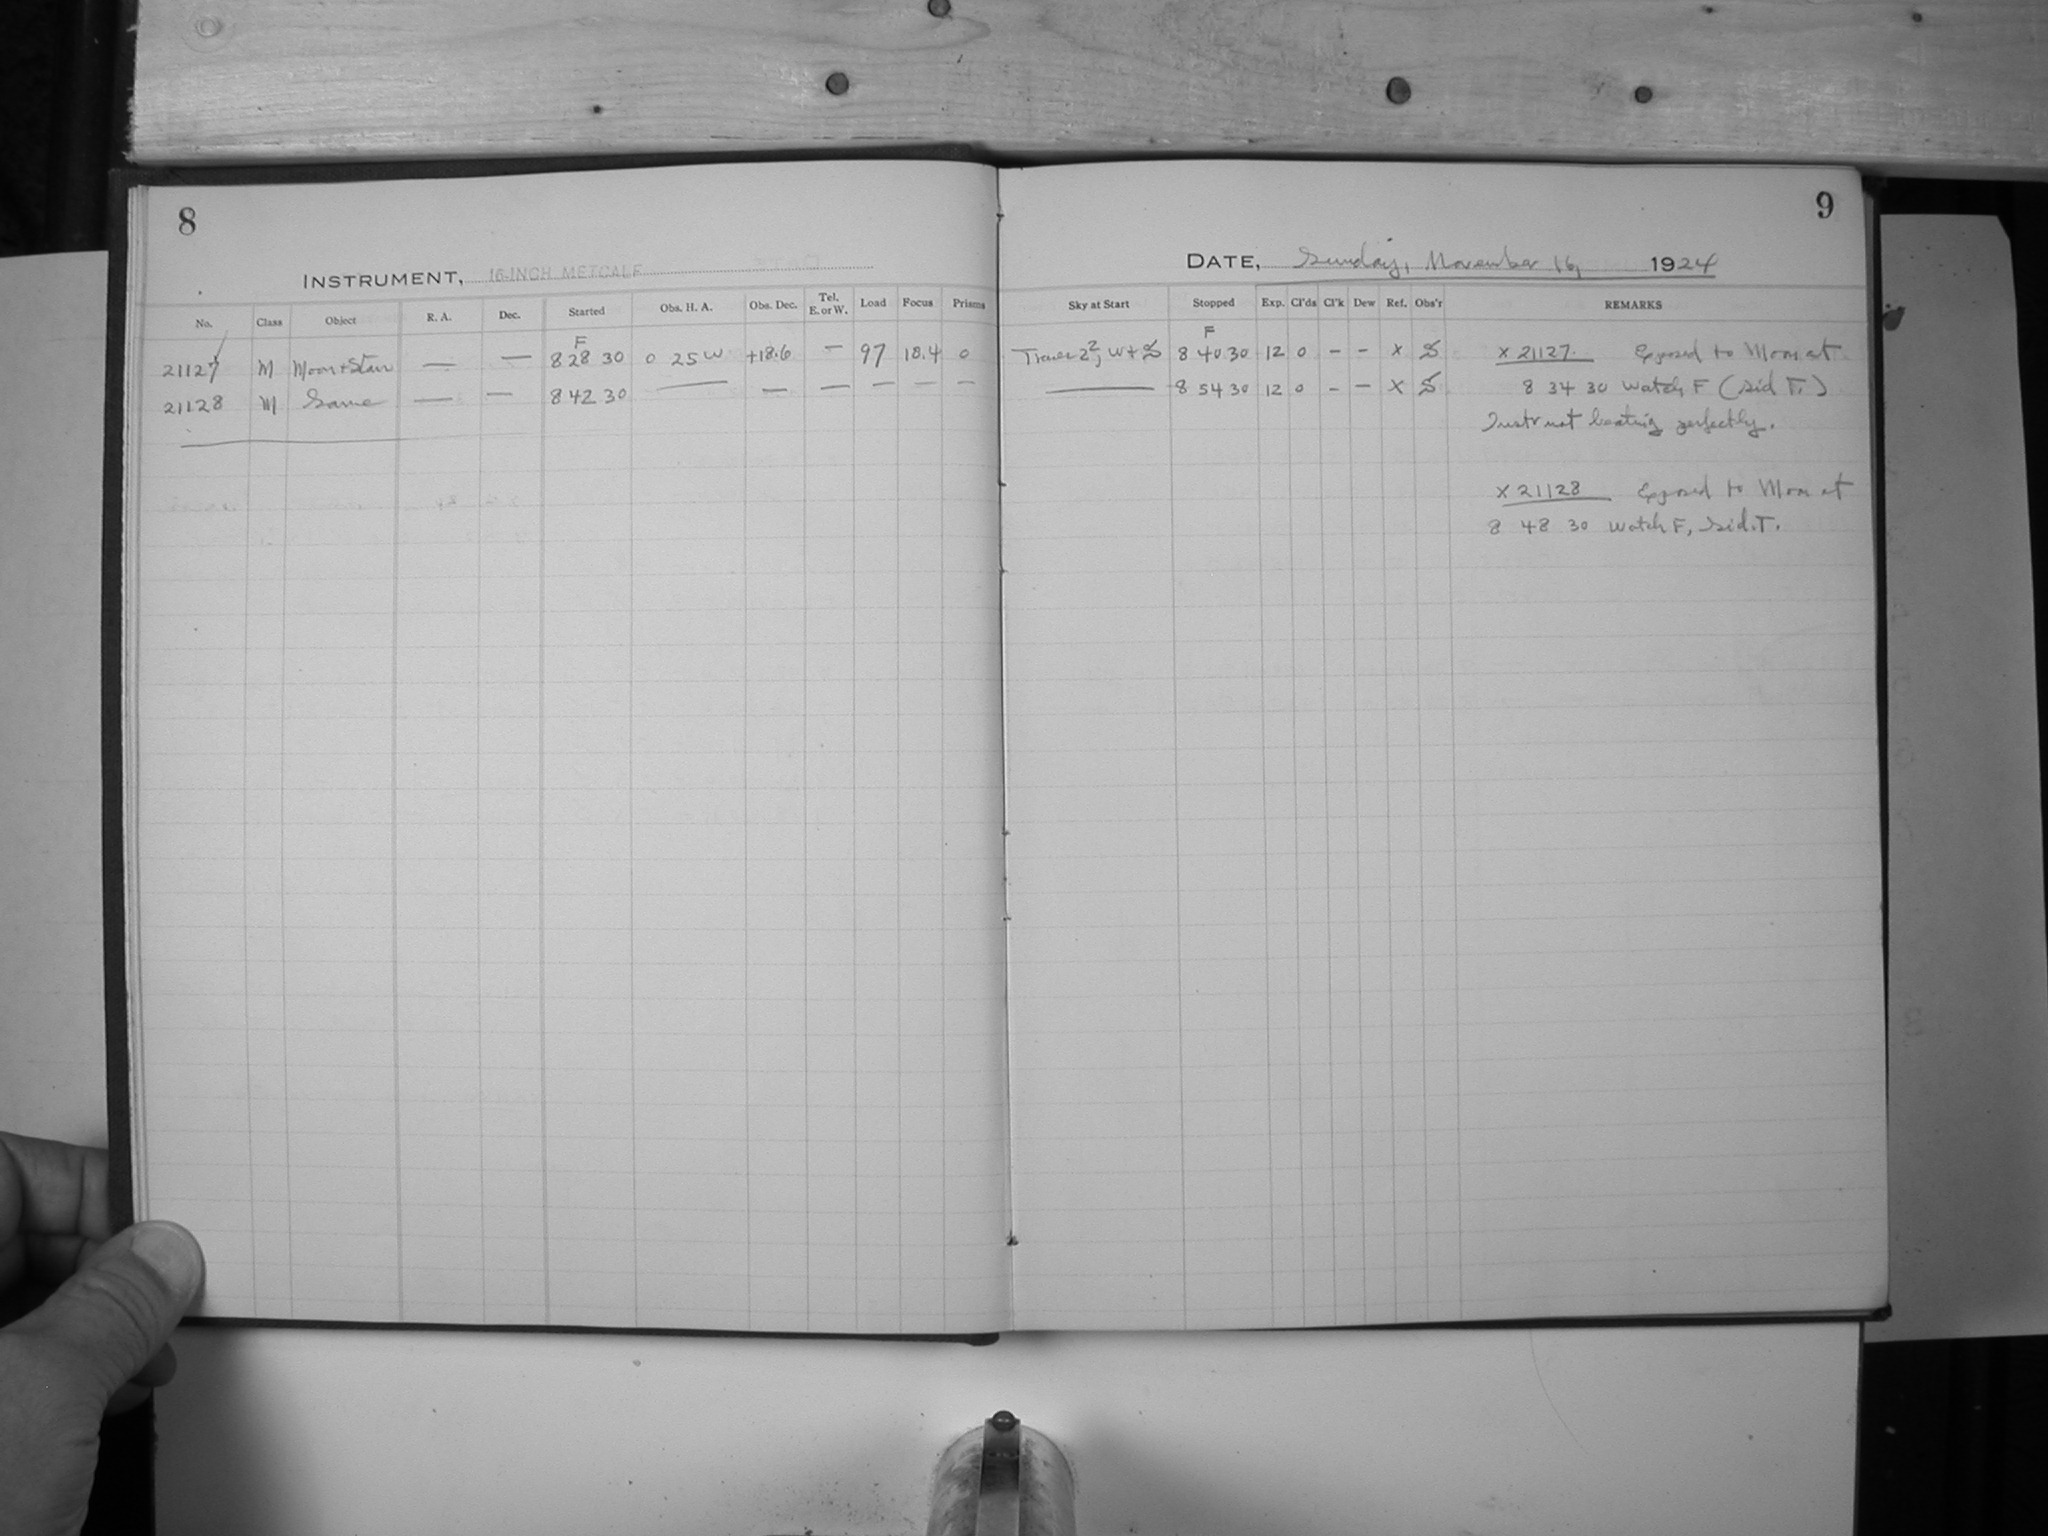 8
INSTRUMENT, 16-INCH METCALF
No. Class Object R. A. Dec. Started Obs. H. A. Obs. Dec. Tel. E. or W. Load Focus Prisms
F
21127 M Moon+Stars — — 8 28 30 0 25 W +18.6 — 97 18.4 0
21128 M Same — — 8 42 30 — — — — — —
9
DATE, Sunday, November 16, 1924
Sky at Start Stopped Exp. Cl'ds Cl'k Dew Ref. Obs'r REMARKS
F
8 40 30 12 0 – – X X 21127. Exposed to Moon at
— 8 54 30 12 0 – – X 8 34 30 Watch F (Sid T.)
Instr not beating perfectly.
X 21128 Exposed to Moon at
8 48 30 Watch F, Sid. T.